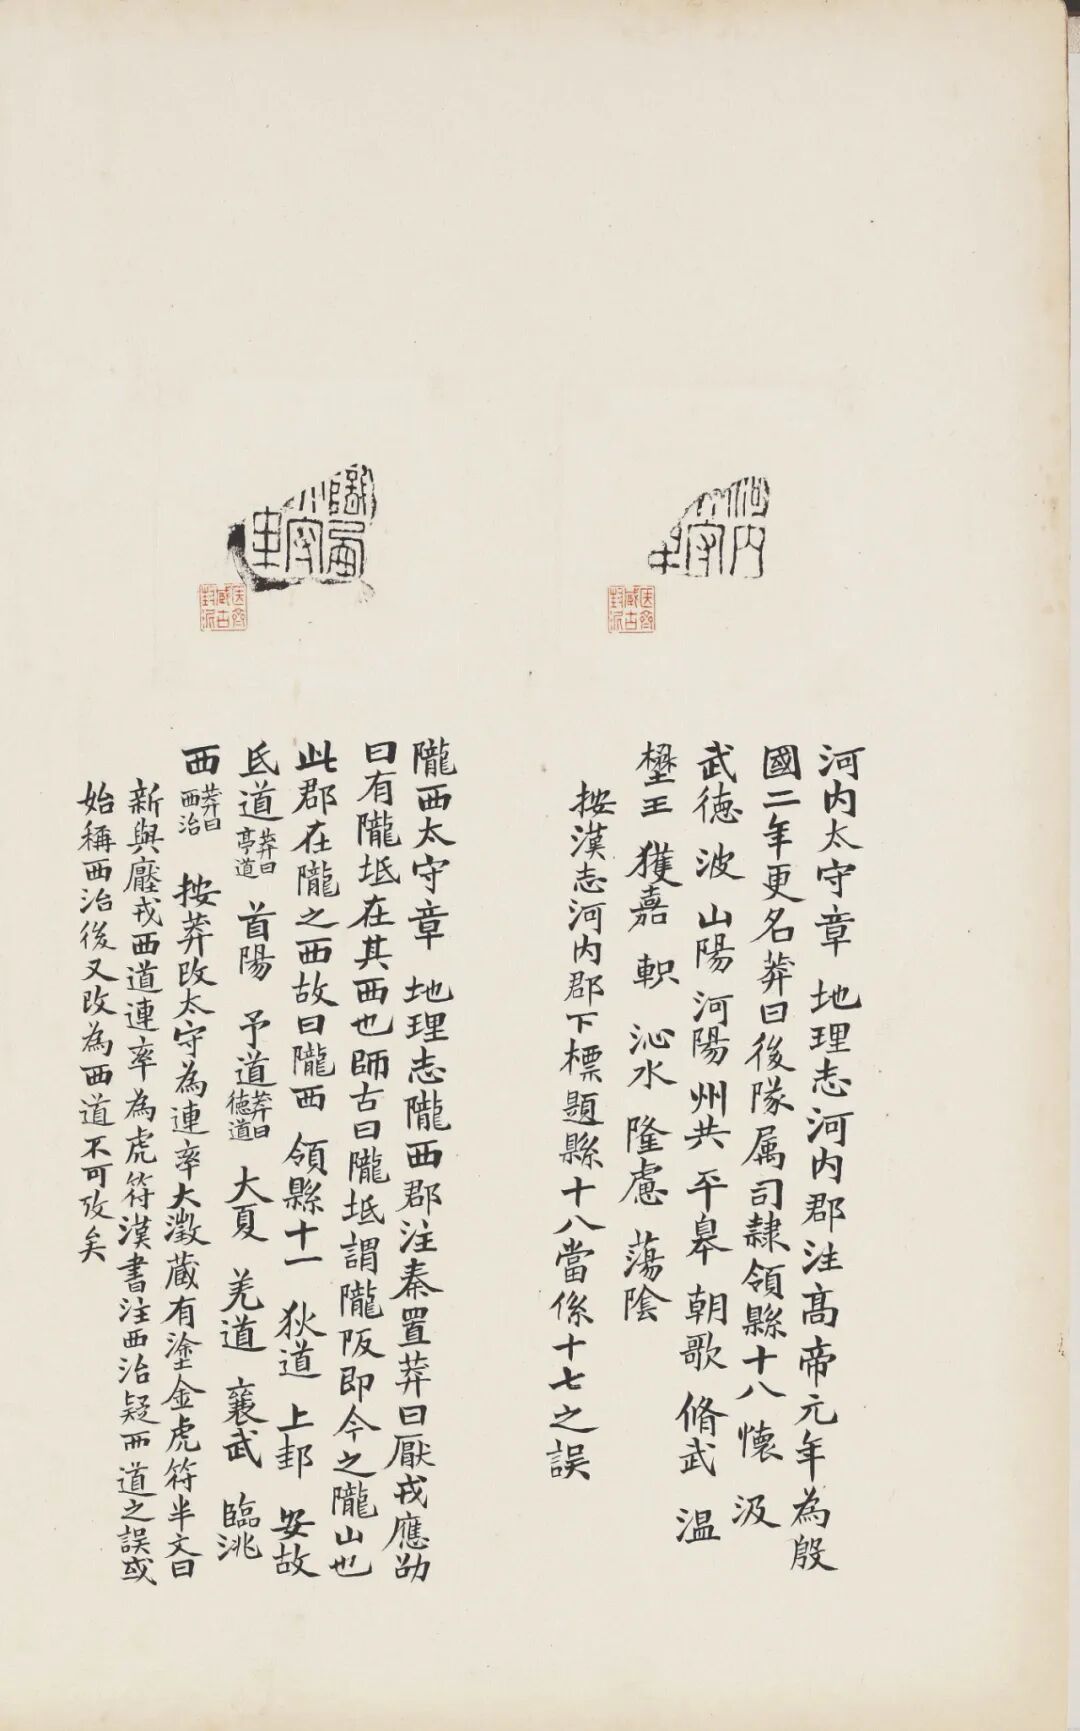 河內
守
隴西
守
匋齋
藏古
封泥
匋齋
藏古
封泥
河内太守章 地理志河内郡注高帝元年為殷
國二年更名莽曰後隊属司隷領縣十八 懷 汲
武德 波 山陽 河陽 州 共 平皋 朝歌 脩武 温
壄王 獲嘉 軹 沁水 隆慮 蕩陰
按漢志河内郡下標題縣十八當係十七之誤
隴西太守章 地理志隴西郡注秦置莽曰厭戎應劭
曰有隴坻在其西也師古曰隴坻謂隴阪即今之隴山也
此郡在隴之西故曰隴西 領縣十一 狄道 上邽 安故
氐道莽曰亭道 首陽 予道莽曰德道 大夏 羌道 襄武 臨洮
西莽曰西治 按莽改太守為連率大澂藏有塗金虎符半文曰
新與壓戎西道連率為虎符漢書注西治疑西道之誤或
始稱西治後又改為西道不可攷矣